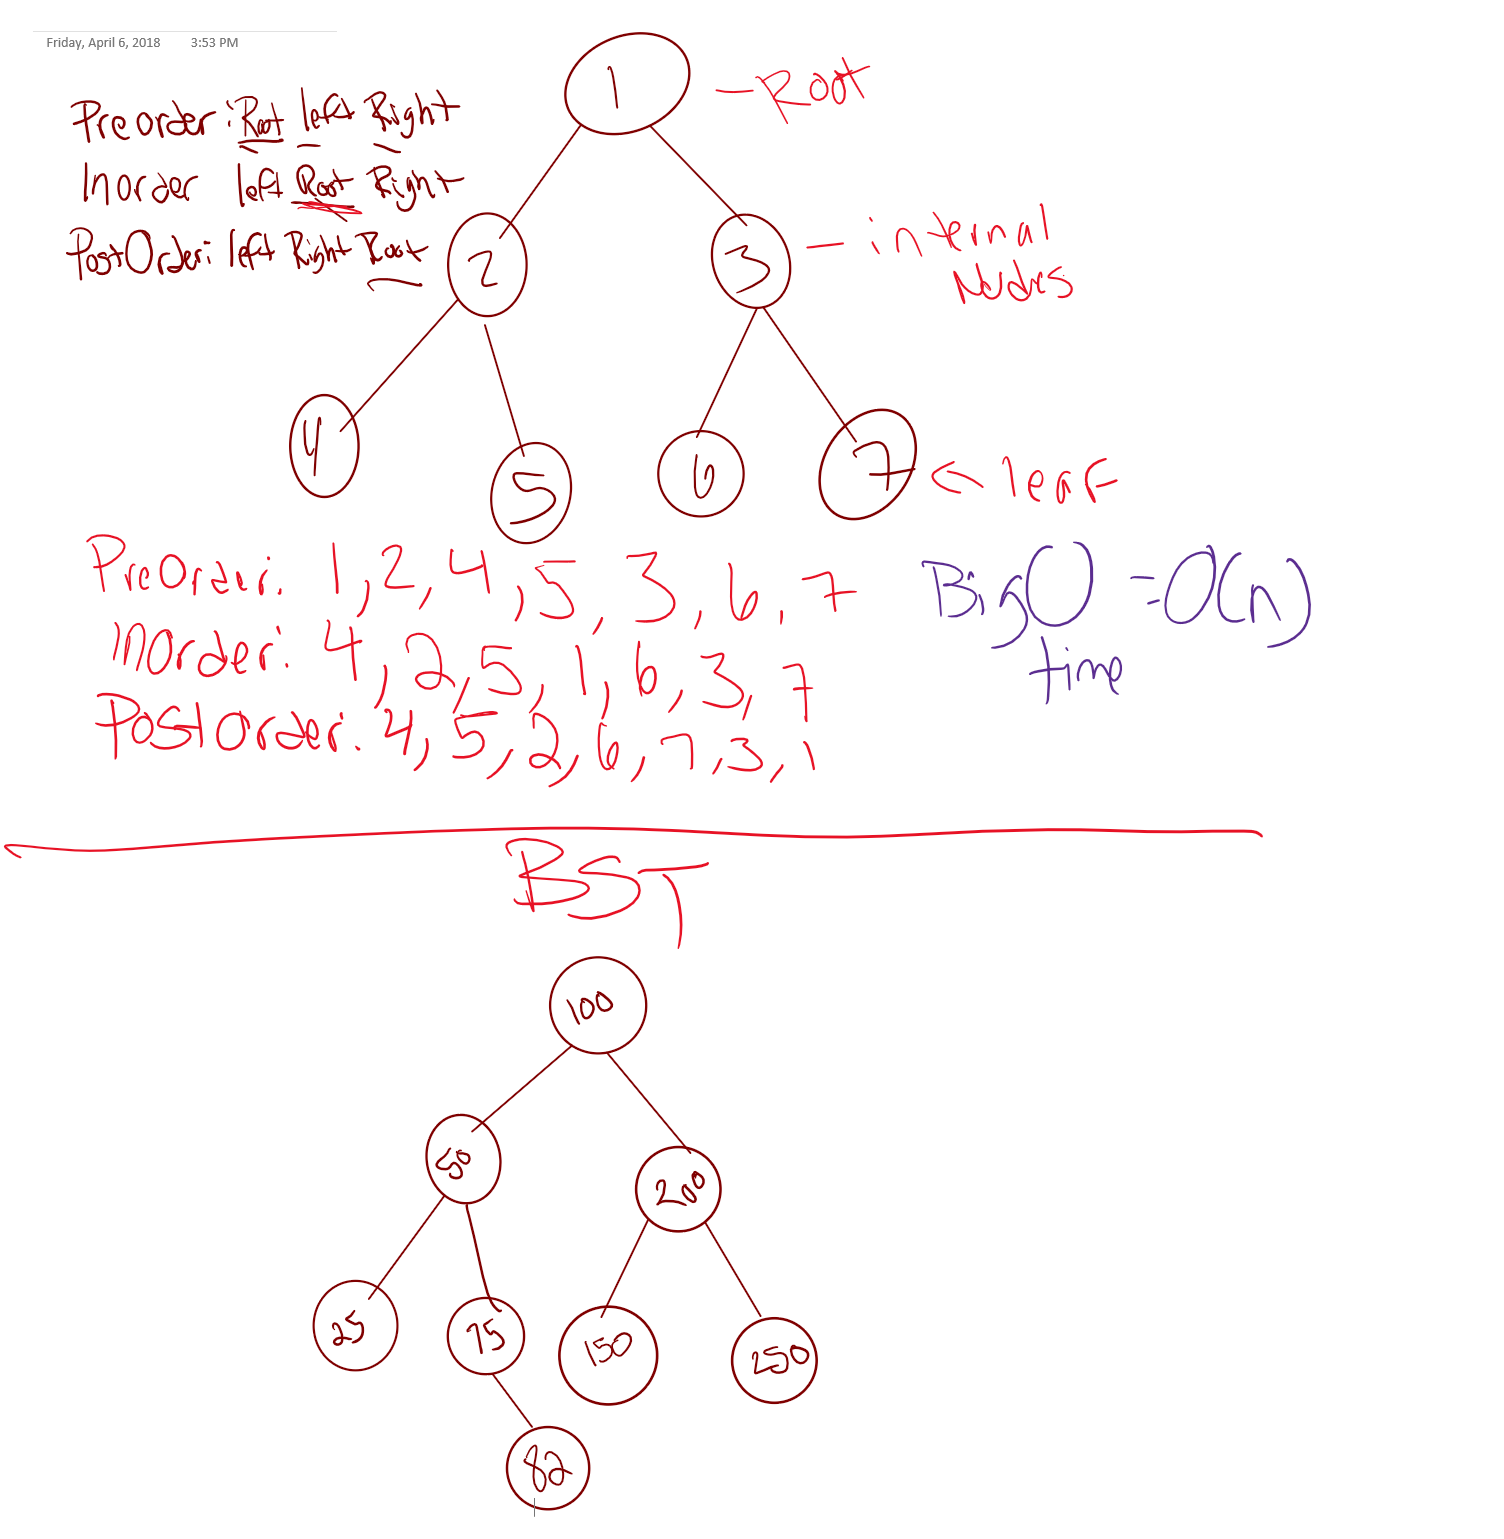 Friday, April 6, 2018 3:53 PM
1 - Root
Preorder: Root left Right
Inorder left Root Right
PostOrder: left Right Root
2 3 - internal
Nodes
4 5 6 7 ← leaf
PreOrder: 1, 2, 4, 5, 3, 6, 7
InOrder: 4, 2, 5, 1, 6, 3, 7
PostOrder: 4, 5, 2, 6, 7, 3, 1
BigO = O(n)
time
BST
100
50 200
25 75 150 250
82